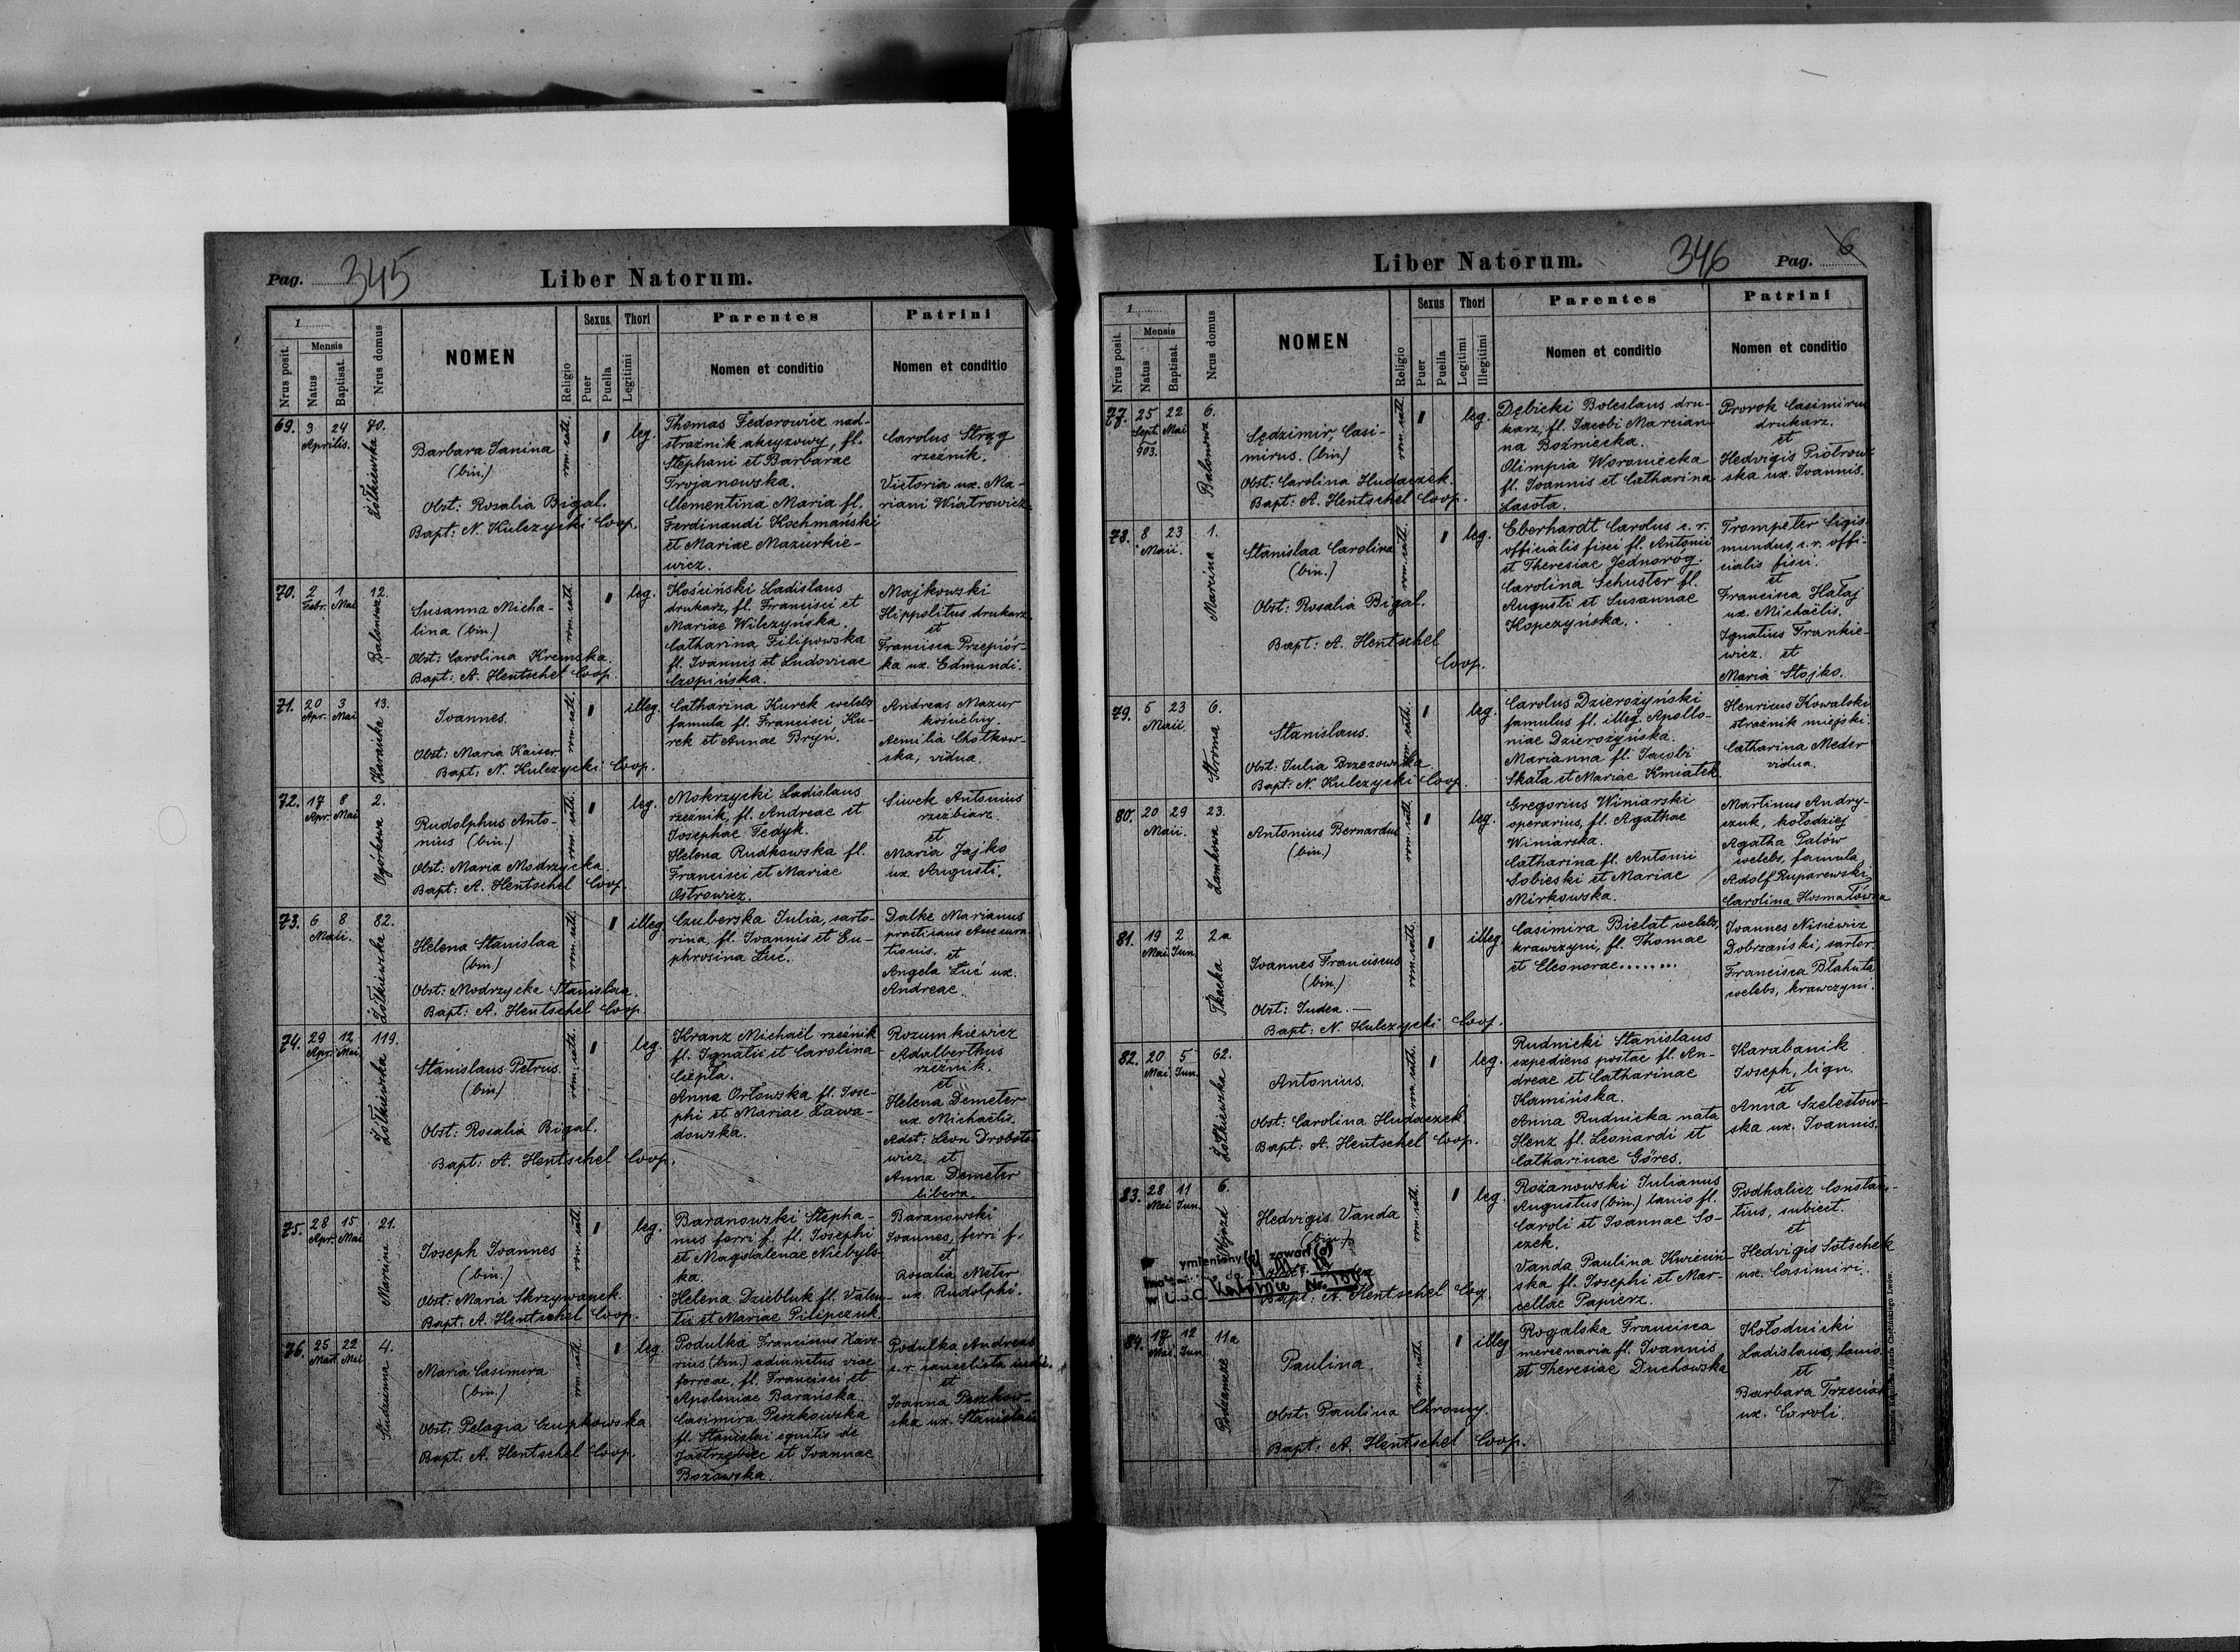 Pag. 345
Liber Natorum.
1
Nrus posit.
Mensis
Natus
Baptisat.
Nrus domus
NOMEN
Religio
Sexus
Puer
Puella
Thori
Legitimi
Parentes
Nomen et conditio
Patrini
Nomen et conditio
69. 3 24 Aprilis. 70. Żółkiewska
Barbara Janina
(bin.)
Obst: Rosalia Bigal.
Bapt: N. Kulczycki Coop.
rom. cath.
leg.
Thomas Fedorowicz nad-
strażnik akcyzowy, fl.
Stephani et Barbarae
Trojanowska.
Clementina Maria fl.
Ferdinandi Kochmański
et Mariae Mazurkie-
wicz.
Carolus Strąg
rzeźnik.
Victoria ux. Ma-
riani Wiatrowicz.
70. 2 Febr. 1 Mai 12. Balonowa
Susanna Micha-
lina (bin.)
Obst: Carolina Kremska.
Bapt: A. Hentschel Coop.
rom. cath.
leg.
Kosiński Ladislaus
drukarz, fl. Francisci et
Mariae Wilczyńska.
Catharina Filipowska
fl. Ioannis et Ludovicae
Czopińska.
Majkowski
Hippolitus drukarz
et
Francisca Przepiór-
ka ux. Edmundi.
71. 20 Apr. 3 Mai 13. Karaicka
Ioannes.
Obst: Maria Kaiser
Bapt: N. Kulczycki Coop.
rom. cath.
illeg.
Catharina Kurek welebs
famula fl. Francisci Ku-
rek et Annae Bryń.
Andreas Mazur
kościelny.
Aemilia Chotkow-
ska, vidua.
72. 17 Apr. 8 Mai 2. Ogórkowa
Rudolphus Anto-
nius (bin.)
Obst: Maria Modrzycka.
Bapt: A. Hentschel Coop.
rom. cath.
leg.
Mokrzycki Ladislaus
rzeźnik, fl. Andreae et
Iosephae Fedyk.
Helena Rudkowska fl.
Francisci et Mariae
Ostrowicz.
Siwek Antonius
rzeźbiarz
et
Maria Jajko
ux. Augusti.
73. 6 8 Maii. 82. Żółkiewska
Helena Stanislaa
(bin)
Obst: Modrzycka Stanislaa.
Bapt: A. Hentschel Coop.
rom. cath.
illeg.
Czuberska Iulia, sarto-
rina, fl. Ioannis et Eu-
phrosina Łuć.
Dalke Marianus
practicans Assecura-
tionis. et
Angela Łuć ux.
Andreae.
74. 29 Apr. 12 Mai. 119. Żółkiewska
Stanislaus Petrus.
(bin)
Obst: Rosalia Bigal.
Bapt: A. Hentschel Coop.
rom. cath.
leg.
Kranz Michaël rzeźnik
fl. Ignatii et Carolina
Ciepła.
Anna Orłowska fl. Iose-
phi et Mariae Zawa-
dowska.
Rozumkiewicz
Adalberthus
rzeźnik.
et
Helena Demeter
ux. Michaelis.
Adst: Leon Droboto-
wicz. et
Anna Demeter
libera.
75. 28 Apr. 15 Mai 21. Marcina
Ioseph Ioannes
(bin.)
Obst: Maria Skrzywanek.
Bapt: A. Hentschel Coop.
rom. cath.
leg.
Baranowski Stepha-
nus ferri f. fl. Iosephi
et Magdalenae Niebyls-
ka.
Helena Dziebluk fl. Valen-
tii et Mariae Pilipczuk.
Baranowski
Ioannes, ferri f.
et
Rosalia Meter
ux. Rudolphi.
76. 25 Mart. 22 Mai 4. Studzienna
Maria Casimira
(bin.)
Obst: Pelagia Czupkowska
Bapt: A. Hentschel Coop.
rom. cath.
leg.
Podulka Franciscus Xave-
rius (bin.) adiunctus viae
ferreae, fl. Francisci et
Apoloniae Barańska
Casimira Peszkowska
fl. Stanislai equitis de
Jastrzębiec et Ioannae
Bozowska.
Podulka Andreas
c. r. cancelista
et
Ioanna Peszkow-
ska ux. Stanislai
Liber Natorum.
346
Pag. 6
1
Nrus posit.
Mensis
Natus
Baptisat.
Nrus domus
NOMEN
Religio
Sexus
Puer
Puella
Thori
Legitimi
Illegitimi
Parentes
Nomen et conditio
Patrini
Nomen et conditio
77. 25 Sept. 903. 22 Mai 6. Balonowa
Sędzimir, Casi-
mirus. (bin)
Obst: Carolina Hudaczek.
Bapt: A. Hentschel Coop.
rom. cath.
leg.
Dębicki Boleslaus dru-
karz, fl. Iacobi Marcian-
na Boźniecka.
Olimpia Woroniecka
fl. Ioannis et Catharina
Lasota.
Prorok Casimirus
drukarz.
et
Hedvigis Piotrow-
ska ux. Ioannis.
78. 8 23 Maii. 1. Marcina
Stanislaa Carolina
(bin.)
Obst: Rosalia Bigal.
Bapt: A. Hentschel
Coop.
rom. cath.
leg.
Eberhardt Carolus c. r.
officialis fisci fl. Antonii
et Theresiae Jednoróg.
Carolina Schuster fl.
Augusti et Susannae
Kopczyńska.
Trompeter Sigis-
mundus, c. r. offi-
cialis fisci.
et
Francisca Hałaj
ux. Michaëlis.
Ignatius Frankie-
wicz. et
Maria Stojko.
79. 5 23 Maii 6. Stroma
Stanislaus.
Obst: Iulia Brzezowska.
Bapt: N. Kulczycki Coop.
rom. cath.
leg.
Carolus Dzierożyński
famulus fl. illeg. Apollo-
niae Dzierożyńska.
Marianna fl. Iacobi
Skała et Mariae Kmiatek.
Henricus Kowalski
strażnik miejski.
Catharina Meder
vidua.
80. 20 29 Maii. 23. Zamkowa
Antonius Bernardus
(bin.)
rom. cath.
leg.
Gregorius Winiarski
operarius, fl. Agathae
Winiarska.
Catharina fl. Antonii
Sobieski et Mariae
Mirkowska.
Martinus Andry-
czuk, kołodziej
Agatha Patów
welebs, famula
Adolf Ruparewski
Carolina Kosmatówna
81. 19 Mai 2 Iun. 2a Tkacka
Ioannes Franciscus
(bin.)
Obst: Iudea. —
Bapt: N. Kulczycki Coop.
rom. cath.
illeg.
Casimira Bielat welebs,
krawczyni, fl. Thomae
et Eleonorae........
Ioannes Nisiewicz
Dobrzański, sartor.
Francisca Błahuta
welebs, krawczyni.
82. 20 Mai 5 Iun. 62. Żółkiewska
Antonius.
Obst: Carolina Hudaczek
Bapt: A. Hentschel Coop.
rom. cath.
leg.
Rudnicki Stanislaus
expediens postae fl. An-
dreae et Catharinae
Kamińska.
Anna Rudnicka nata
Henz fl. Leonardi et
Catharinae Göres.
Karabanik
Ioseph, lign.
et
Anna Szelestow-
ska ux. Ioannis.
83. 28 Mai 11 Iun. 6. Objazd
Hedvigis Vanda
(bin.)
ymieniony(a) zawarł(a)
Katowice Nr. 
Bapt: A. Hentschel Coop
rom. cath.
leg.
Rożanowski Iulianus
Augustus (bin.) lanio fl.
Caroli et Ioannae So-
czek.
Vanda Paulina Kwieciń-
ska fl. Iosephi et Mar-
cellae Papierz.
Podhalicz Constan-
tius, subiect.
et
Hedvigis Sotschek
ux. Casimiri.
84. 17 Mai. 12 Iun. 11a Podzamcze
Paulina
Obst: Paulina Chromy.
Bapt: A. Hentschel Coop.
rom. cath.
illeg
Rogalska Francisca
mercenaria fl. Ioannis
et Theresiae Duchowska
Kołodnicki
Ladislaus, lanio.
et
Barbara Trzeciak
ux. Caroli.